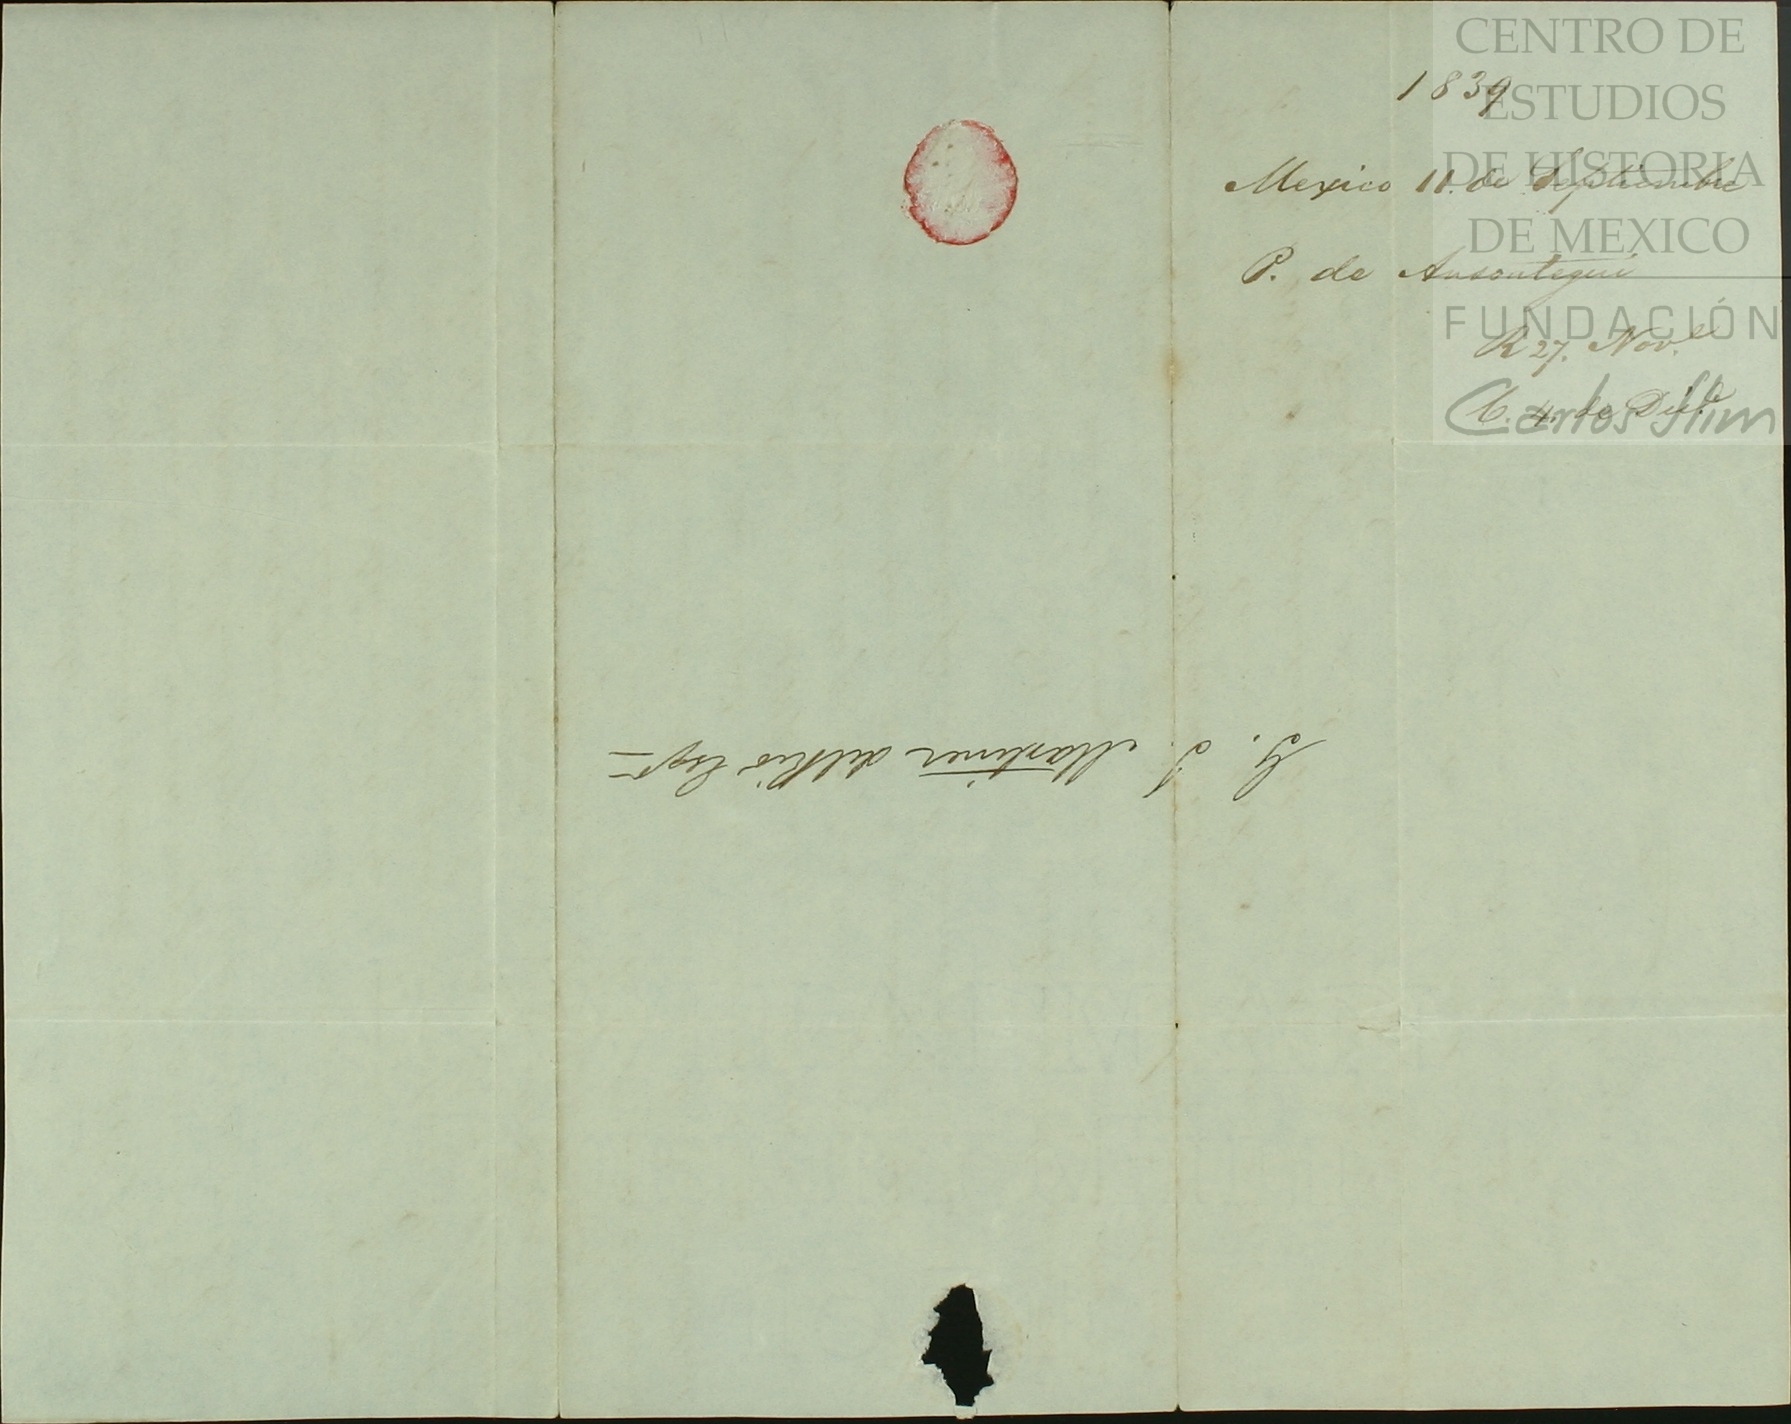 1839
Mexico 11. de Septiembre
P. de Ansoategui
R 27. Nov.e
C. 4 de Dic.e
G. J. Martinez del Rio Esqr.
CENTRO DE
ESTUDIOS
DE HISTORIA
DE MEXICO
FUNDACIÓN
Carlos Slim